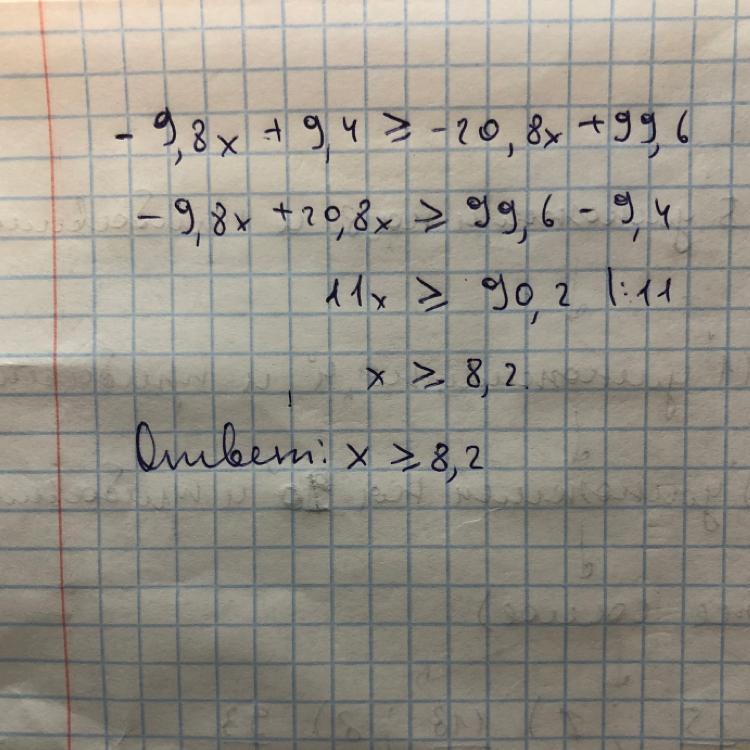 - 9,8x + 9,4 ≥ -20,8x + 99,6
- 9,8x + 20,8x ≥ 99,6 - 9,4
11x ≥ 90,2 |:11
x ≥ 8,2
Ответ: x ≥ 8,2